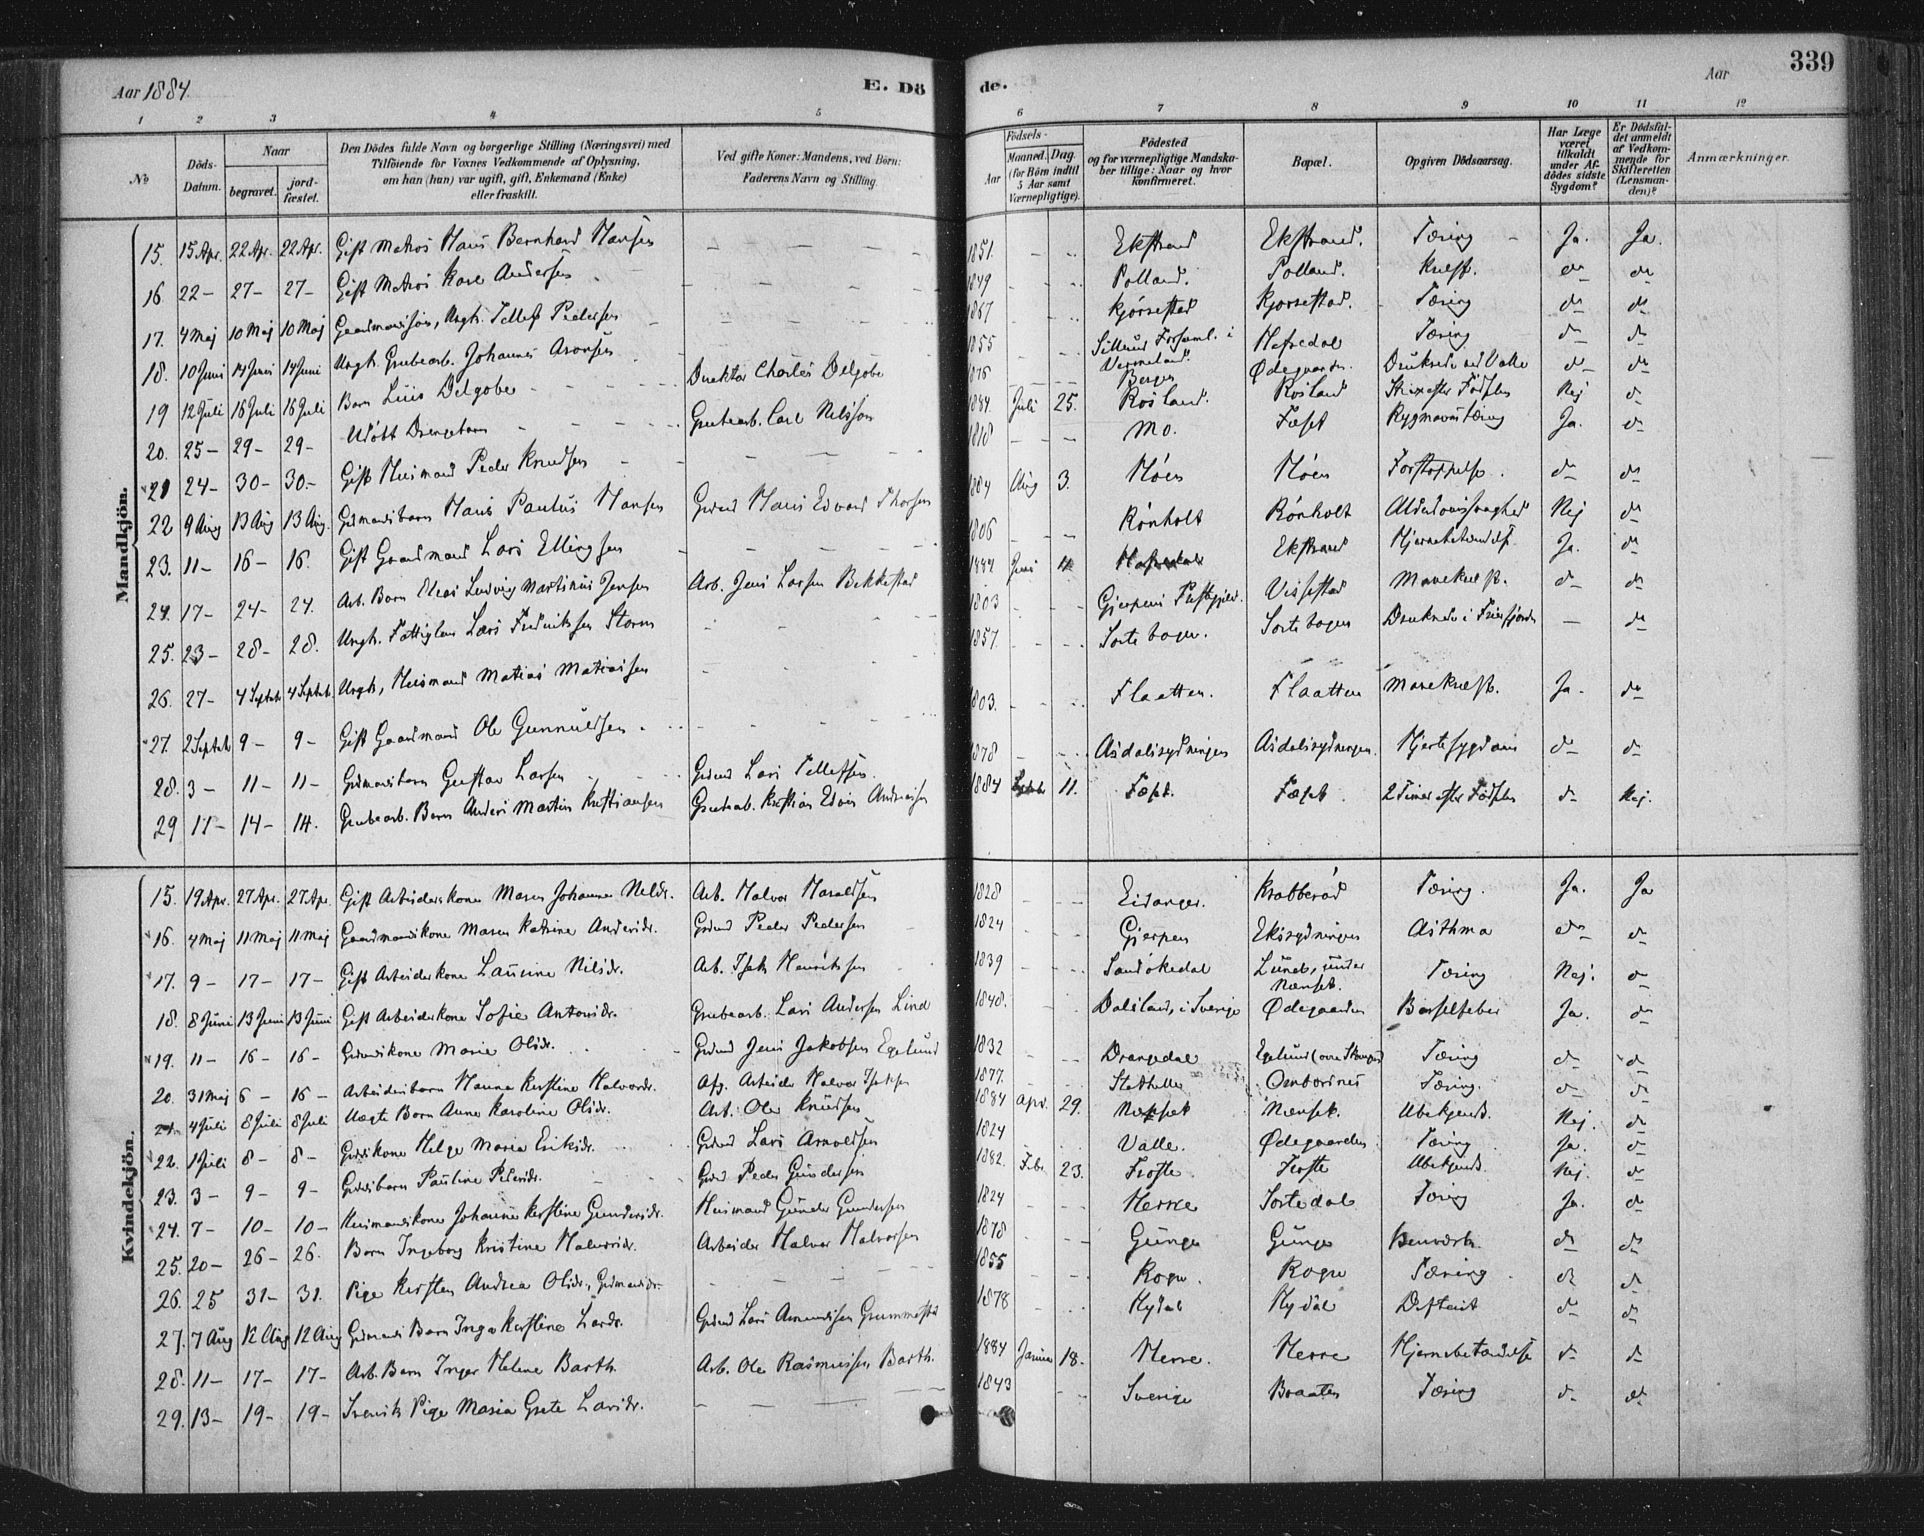 Aar 1884.
E. Dö
de.
Aar
339
1 2 3 4 5 6 7 8 9 10 11 12
No
Döds-Datum.
Naar
begravet.
jordfæstet.
Den Dödes fulde Navn og borgerlige Stilling (Næringsvei) med Tilföiende for Voxnes Vedkommende af Oplysning, om han (hun) var ugift, gift, Enkemand (Enke) eller fraskilt.
Ved gifte Koner: Mandens, ved Börn: Faderens Navn og Stilling.
Födsels-
Aar
Maaned. Dag.
(for Börn indtil 5 Aar samt Værnepligtige).
Födested og for værnepligtige Mandskaber tillige: Naar og hvor konfirmeret.
Bopæl.
Opgiven Dödsaarsag.
Har Læge været tilkaldt under Afdödes sidste Sygdom?
Er Dödsfaldet anmeldt af Vedkommende for Skifteretten (Lensmanden)?
Anmærkninger.
Mandkjön.
15. 15 Apr. 22 Apr. 22 Apr. Gift Matros Hans Bernhard Hansen 1851. Ekstrand Ekstrand. Tæring Ja. Ja.
16 22 - 27 - 27 - Gift Matros Karl Andersen 1849 Polland. Polland. Kræft. do do
17. 4 Maj 10 Maj 10 Maj Gaardmandssøn, Ungk. Tellef Pedersen 1867 Kjørsestad Kjørsestad. Tæring do do
18. 10 Juni 14 Juni 14 Juni Ungk. Grubearb. Johannes Aronsen 1855 Sillerud Forsaml. i Vermeland. Hafredal Tæring do do
19 12 Juli 16 Juli 16 Juli Barn Luis Delgobe Direktør Charles Delgobe 1876 Bergen Ødegaarden. Druknede ved Valle do do
20. 25 - 29 - 29 - Udøbt Drengebarn Grubearb. Carl Nilsson 1884. Juli 25. Rosland. Rosland Strax efter Fødselen Nej do
21 24 - 30 - 30 - Gift Husmand Peder Knudsen 1818 Mo. Fæset Rygmarvstæring Ja. do
22 9 Aug 13 Aug 13 Aug. Grdmandsbarn Hans Paulus Hansen Grdmd Hans Edvard Thorsen 1884 Aug 3. Høen Høen Forstoppelse. do do
23. 11 - 16 - 16. Gift Gaardmand Lars Ellingsen 1806 Rønholt Rønholt Alderdomssvaghed Nej do
24. 17 - 24 - 24. Arb. Barn Elias Ludvig Martinius Jensen Arb. Jens Larsen Bekkestad 1884 Juni Hafredal Ekstrand Hjernebetændelse Ja. do
25. 23 - 28 - 28. Ungk. Fattiglem Lars Fredriksen Storm 1803 Gjerpens Præstegjeld. Vissestad Mavekræft. do do
26. 27 - 4 Septbr 4 Septbr. Ungk, Husmand Matias Matiassen 1857. Sortebogen. Sortebogen Druknede i Friersfjorden do
27. 2 Septbr 9 - 9 - Gift Gaardmand Ole Gunnuldsen 1803. Flaatten. Flaatten Mavekræft. Ja. do
28. 3 - 11 - 11 - Grdmandsbarn Gustav Larsen Grdmd Lars Tellefsen. 1878 Asdalsrydningen Asdalsrydningen. Hjertesygdom do do
29 11 - 14 - 14. Grubearb. Barn Anders Martin Kristiansen Grubearb. Kristian Edvin Andreassen 1884 Septbr. 11. Fæset. Fæset. 2 Timer efter Fødselen do Nej.
Kvindekjön.
15. 19 Apr. 27 Apr. 27 Apr. Gift Arbeiderskone Maren Johanne Nilsdr. Arb. Halvor Haraldsen 1828 Eidanger. Krabberød Tæring. Ja. Ja
16. 4 Maj 11 Maj 11 Maj Gaardmandskone Maren Katrine Andersdr. Grdmd Peder Pedersen 1824 Gjerpen Eksrydningen Asthma do do
17. 9 - 17 - 17 - Gift Arbeiderkone Laurine Nilsdr. Arb. Isak Henriksen 1839 Sandøkedal Lunde, under Nænset. Tæring Nej. do
18. 8 Juni 13 Juni 13 Juni Gift Arbeiderkone Sofie Antonsdr. Grubearb. Lars Andersen Lind 1848. Dalsland, i Sverige Ødegaarden Barselfeber Ja. do
19. 11 - 16 - 16 - Grdmandskone Marie Olsdr. Grdmd Jens Jakobsen Egelund 1832 Drangedal Egelund Tæring do do
20. 31 Maj 6 - 16 - Arbeidersbarn Hanna Kerstine Halvorsdr. Afg. Arbeider Halvor Isaksen 1877. Stathelle Ombordnes Tæring. do do
21. 4 Juli 8 Juli 8 Juli Uægte Barn Anne Karoline Olsdr. Arb. Ole Knudsen 1884 Apr. 29. Nænset Nænset. Ubekjendt. Nej. do
22. 1 Juli 8 - 8 - Grdmdskone Helge Maria Eriksdr. Grdmd Lars Arnoldsen 1824 Valle. Ødegaarden Tæring Ja. do
23. 3 - 9 - 9 - Grdmdsbarn Pauline Pedersdr. Grdmd Peder Gundersen 1882. Febr. 23. Froste Froste Ubekjendt. Nej. do
24. 7 - 10 - 10 - Husmandskone Johanne Kerstine Gundersdr. Husmand Gunder Gundersen 1824 Herre Sortedal Tæring Ja. do
25. 20 - 26 - 26. Barn Ingeborg Kristine Halvorsdr. Arbeider Halvor Halvorsen 1878 Gunge Gunge do do
26. 25 31 - 31. Pige Kersten Andrea Olsdr., Grdmandsdr. 1855 Rogn. Rogn Tæring. do do
27. 7 Aug 12 Aug 12 Aug Grdmands Barn Inga Kerstine Larsdr. Grdmd Lars Amundsen Grummestad 1878 Hydal Hydal Difterit do do
28. 11 - 17 - 17 - Arb. Barn Inger Helene Barth. Arb. Ole Rasmussen Barth. 1884 Januar 18. Herre. Herre Hjernebetændelse do do
29. 13 - 19 - 19 - Svensk Pige Maria Grete Larsdr. 1843 Sverige Braaten Tæring do do